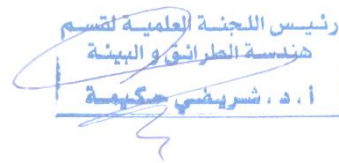 رئيس اللجنة العلمية لقسم
هندسة الطرائق و البيئة
أ . د . شريفي حكيمة